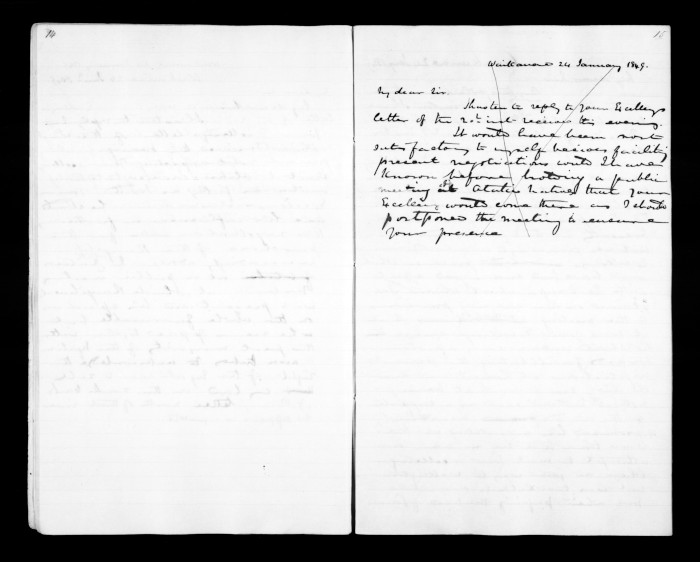 14
15
Waikanae 24 January 1849.
My dear Sir.
I hasten to reply to your Excellency's
letter of the 20th inst received this evening.
It would have been most
satisfactory to myself besides facilitating
present negotiations could I have
known before holding a public
meeting at Otaki Natives that your
Excellency would come there as I should
postponed the meeting to ensure
your presence